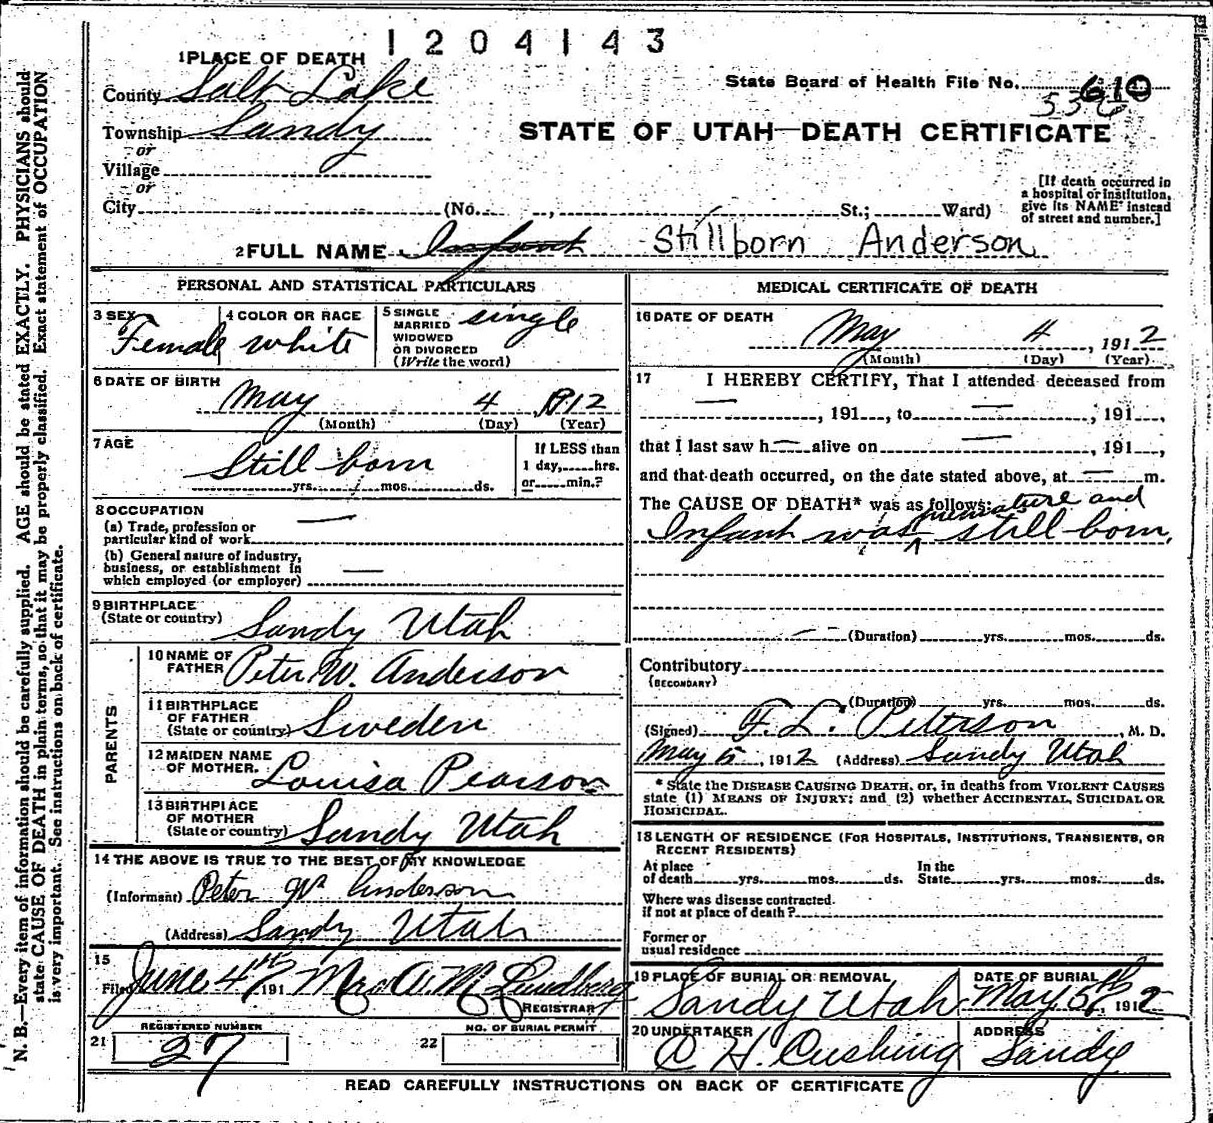 1204143
1 PLACE OF DEATH
County Salt Lake
State Board of Health File No. 610
536
Township Sandy
STATE OF UTAH—DEATH CERTIFICATE
or
Village
or
City (No. , St.; Ward)
[If death occurred in a hospital or institution, give its NAME instead of street and number.]
2 FULL NAME Infant Stillborn Anderson
PERSONAL AND STATISTICAL PARTICULARS
3 SEX Female
4 COLOR OR RACE white
5 SINGLE MARRIED WIDOWED OR DIVORCED (Write the word) single
6 DATE OF BIRTH
May 4, 1912
(Month) (Day) (Year)
7 AGE
Still born
yrs. mos. ds.
If LESS than 1 day, hrs. or min.?
8 OCCUPATION
(a) Trade, profession or particular kind of work —
(b) General nature of industry, business, or establishment in which employed (or employer) —
9 BIRTHPLACE
(State or country) Sandy Utah
PARENTS
10 NAME OF FATHER Peter W. Anderson
11 BIRTHPLACE OF FATHER (State or country) Sweden
12 MAIDEN NAME OF MOTHER Louisa Pearson
13 BIRTHPLACE OF MOTHER (State or country) Sandy Utah
14 THE ABOVE IS TRUE TO THE BEST OF MY KNOWLEDGE
(Informant) Peter W Anderson
(Address) Sandy Utah
15
Filed June 4th 191 Mrs A. M. Lundberg
REGISTRAR
REGISTERED NUMBER
21 27
NO. OF BURIAL PERMIT
22
MEDICAL CERTIFICATE OF DEATH
16 DATE OF DEATH
May 4, 1912
(Month) (Day) (Year)
17 I HEREBY CERTIFY, That I attended deceased from
—, 191 , to —, 191 ,
that I last saw h— alive on —, 191 ,
and that death occurred, on the date stated above, at — m.
The CAUSE OF DEATH* was as follows:
Infant was premature and still born,
— (Duration) yrs. mos. ds.
Contributory
(SECONDARY)
(Duration) yrs. mos. ds.
(Signed) F. L. Peterson, M. D.
May 5, 1912 (Address) Sandy Utah
* State the DISEASE CAUSING DEATH, or, in deaths from VIOLENT CAUSES
state (1) MEANS OF INJURY; and (2) whether ACCIDENTAL, SUICIDAL OR
HOMICIDAL.
18 LENGTH OF RESIDENCE (FOR HOSPITALS, INSTITUTIONS, TRANSIENTS, OR
RECENT RESIDENTS)
At place of death yrs. mos. ds. In the State yrs. mos. ds.
Where was disease contracted.
if not at place of death?
Former or
usual residence
19 PLACE OF BURIAL OR REMOVAL
Sandy Utah
DATE OF BURIAL
May 5th, 1912
20 UNDERTAKER
C H. Cushing
ADDRESS
Sandy
READ CAREFULLY INSTRUCTIONS ON BACK OF CERTIFICATE
N. B.—Every item of information should be carefully supplied. AGE should be stated EXACTLY. PHYSICIANS should
state CAUSE OF DEATH in plain terms, so that it may be properly classified. Exact statement of OCCUPATION
is very important. See instructions on back of certificate.